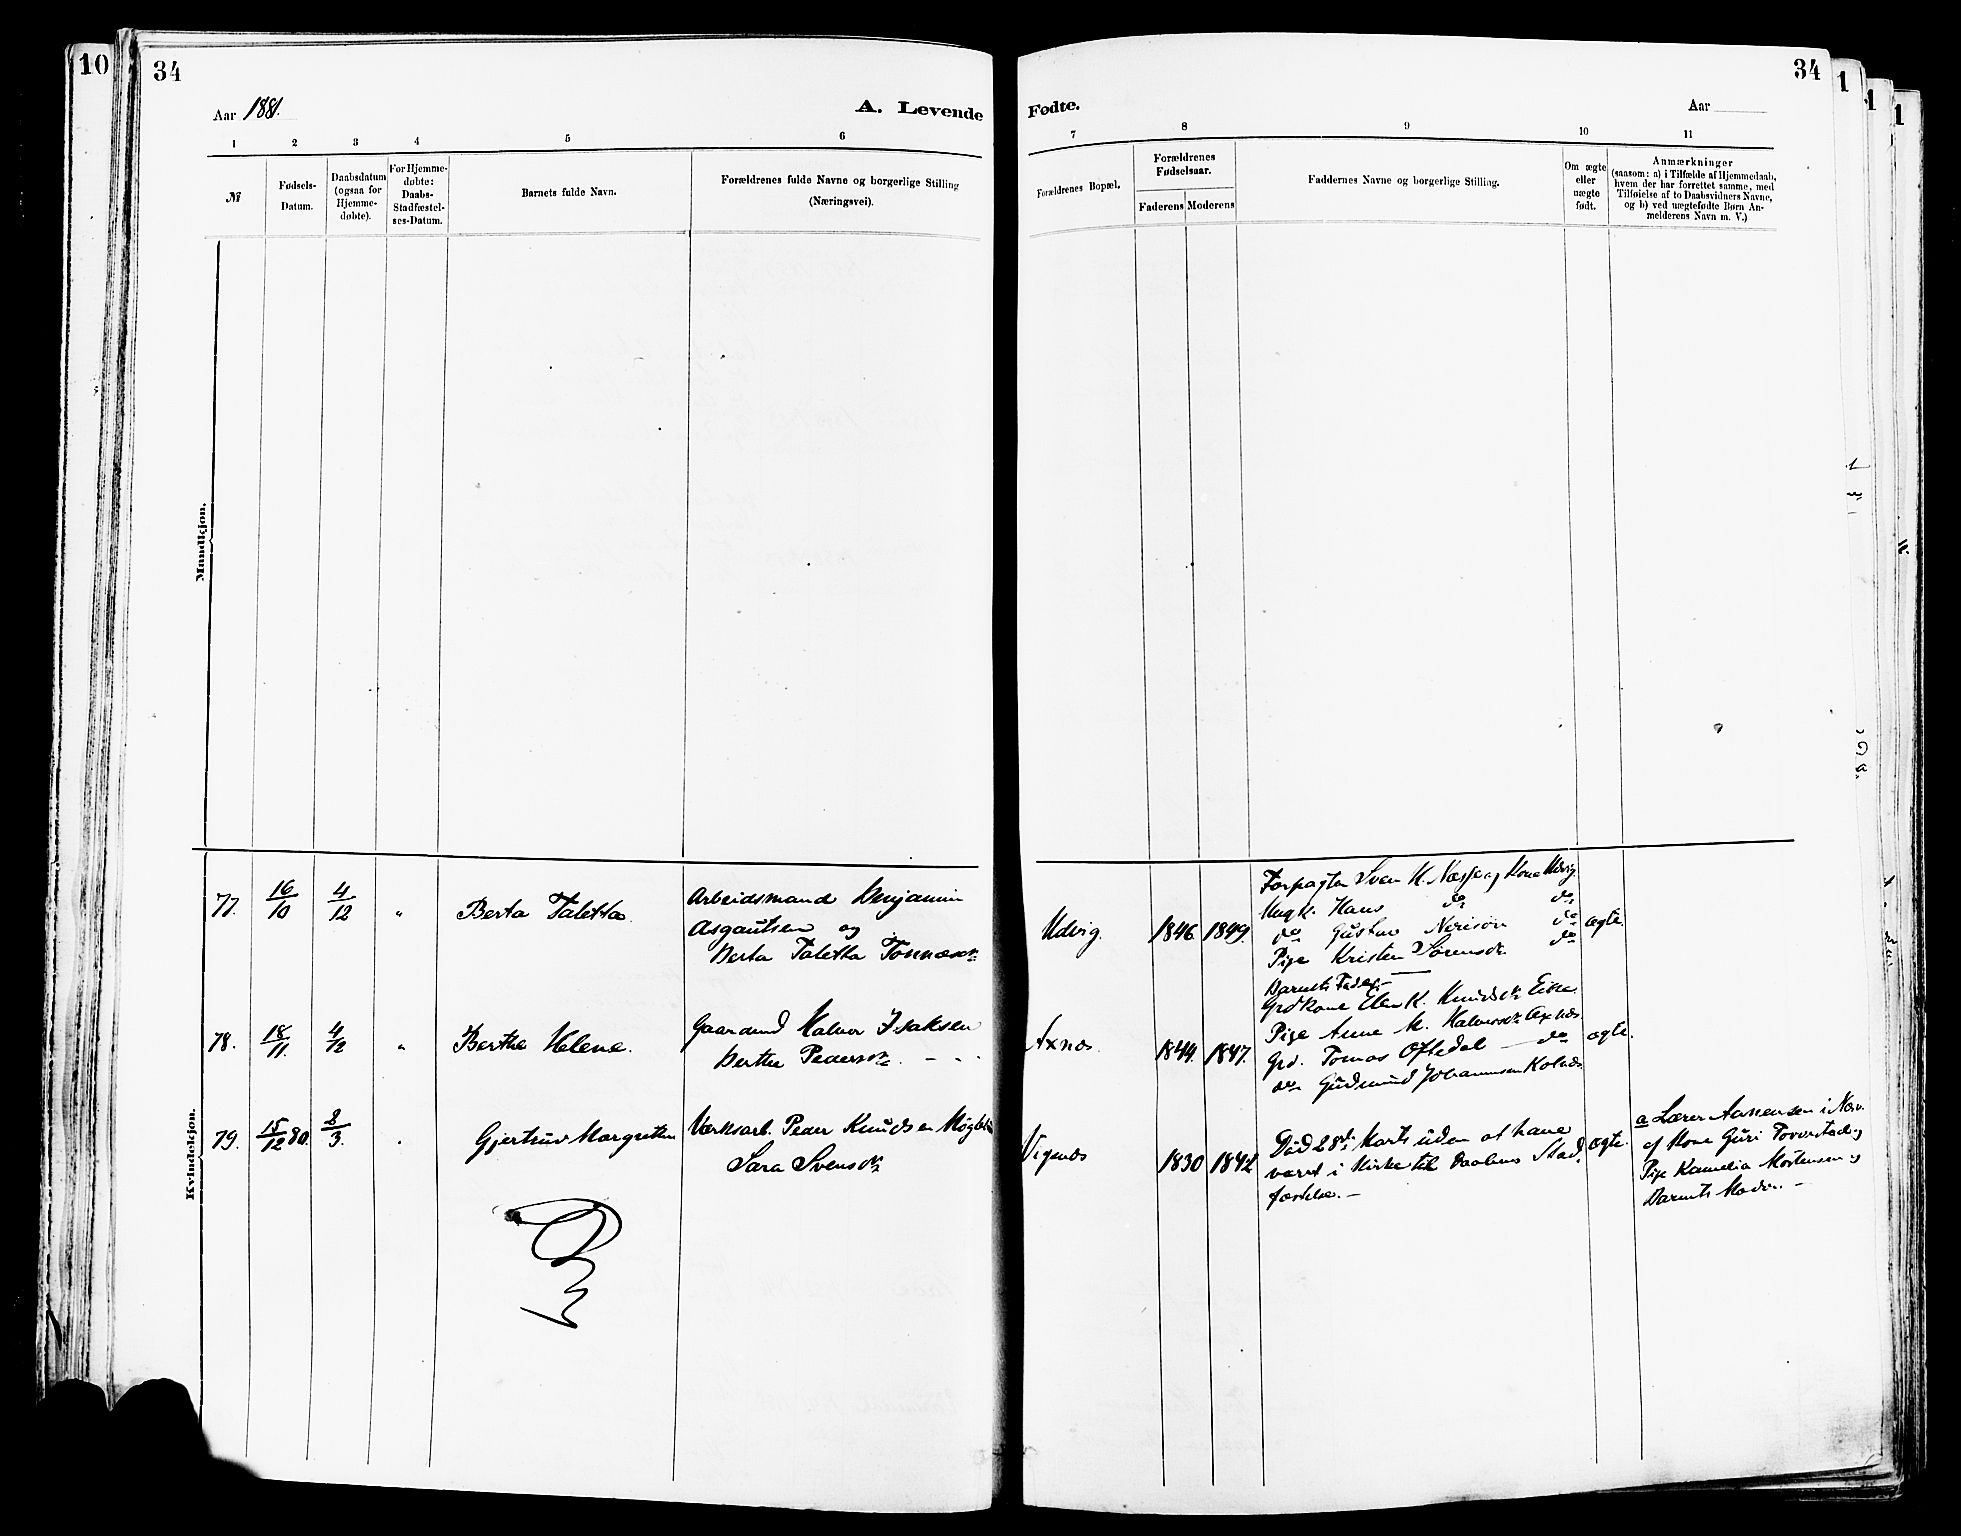 10
34
Aar 1881.
A. Levende
1 2 3 4 5 6
№
Fødsels-
Datum.
Daabsdatum
(ogsaa for
Hjemme-
døbte).
For Hjemme-
døbte:
Daabs-
Stadfæstel-
ses-Datum.
Barnets fulde Navn.
Forældrenes fulde Navne og borgerlige Stilling
(Næringsvei).
Mandkjøn.
Kvindekjøn.
77. 16/10 4/12 " Berta Taletta
Arbeidsmand Benjamin
Asgautsen og
Berta Taletta Tønnesdr
78. 18/11. 4/12 " Berthe Helene.
Gaardmd Halvor Isaksen
Berthe Pedersdr. - - -
79. 15/12 80. 8/3. Gjertruv Margrethe
Værksarb. Peder Knudsen
Sara Svensdr
34
Fødte.
Aar
7 8 9 10 11
Forældrenes Bopæl.
Forældrenes
Fødselsaar.
Faderens Moderens
Faddernes Navne og borgerlige Stilling.
Om ægte
eller
uægte
født.
Anmærkninger
(saasom: a) i Tilfælde af Hjemmedaab,
hvem der har forrettet samme, med
Tilføielse af to Daabsvidners Navne,
og b) ved uægtefødte Børn An-
melderens Navn m. V.)
Udvig. 1846. 1849. ægte.
Forpagter Sven K. Næsse og Kone Udvig
Ungk. Hans do do
do Gustav do
Pige Kristen Sørensdr do
Barnets Fader. -
Axnæs. 1844. 1847. ægte.
Grdkone Elen K. Knudsdr Eike.
Pige Anne M. Halvorsdr Axnæs
Grd. Tomas Oftedal - do
do Gudmund Johannesen Kolnæs
Vigsnæs 1830 1842 ægte.
Død 28de Marts uden at have
været i Kirke til Daabens Stad-
fæstelse. -
a Lærer Aanensen i Nærv.
af Kone Guri Torvestad og
Pige Kamelia Mortensen og
Barnets Moder. -
1
1
1